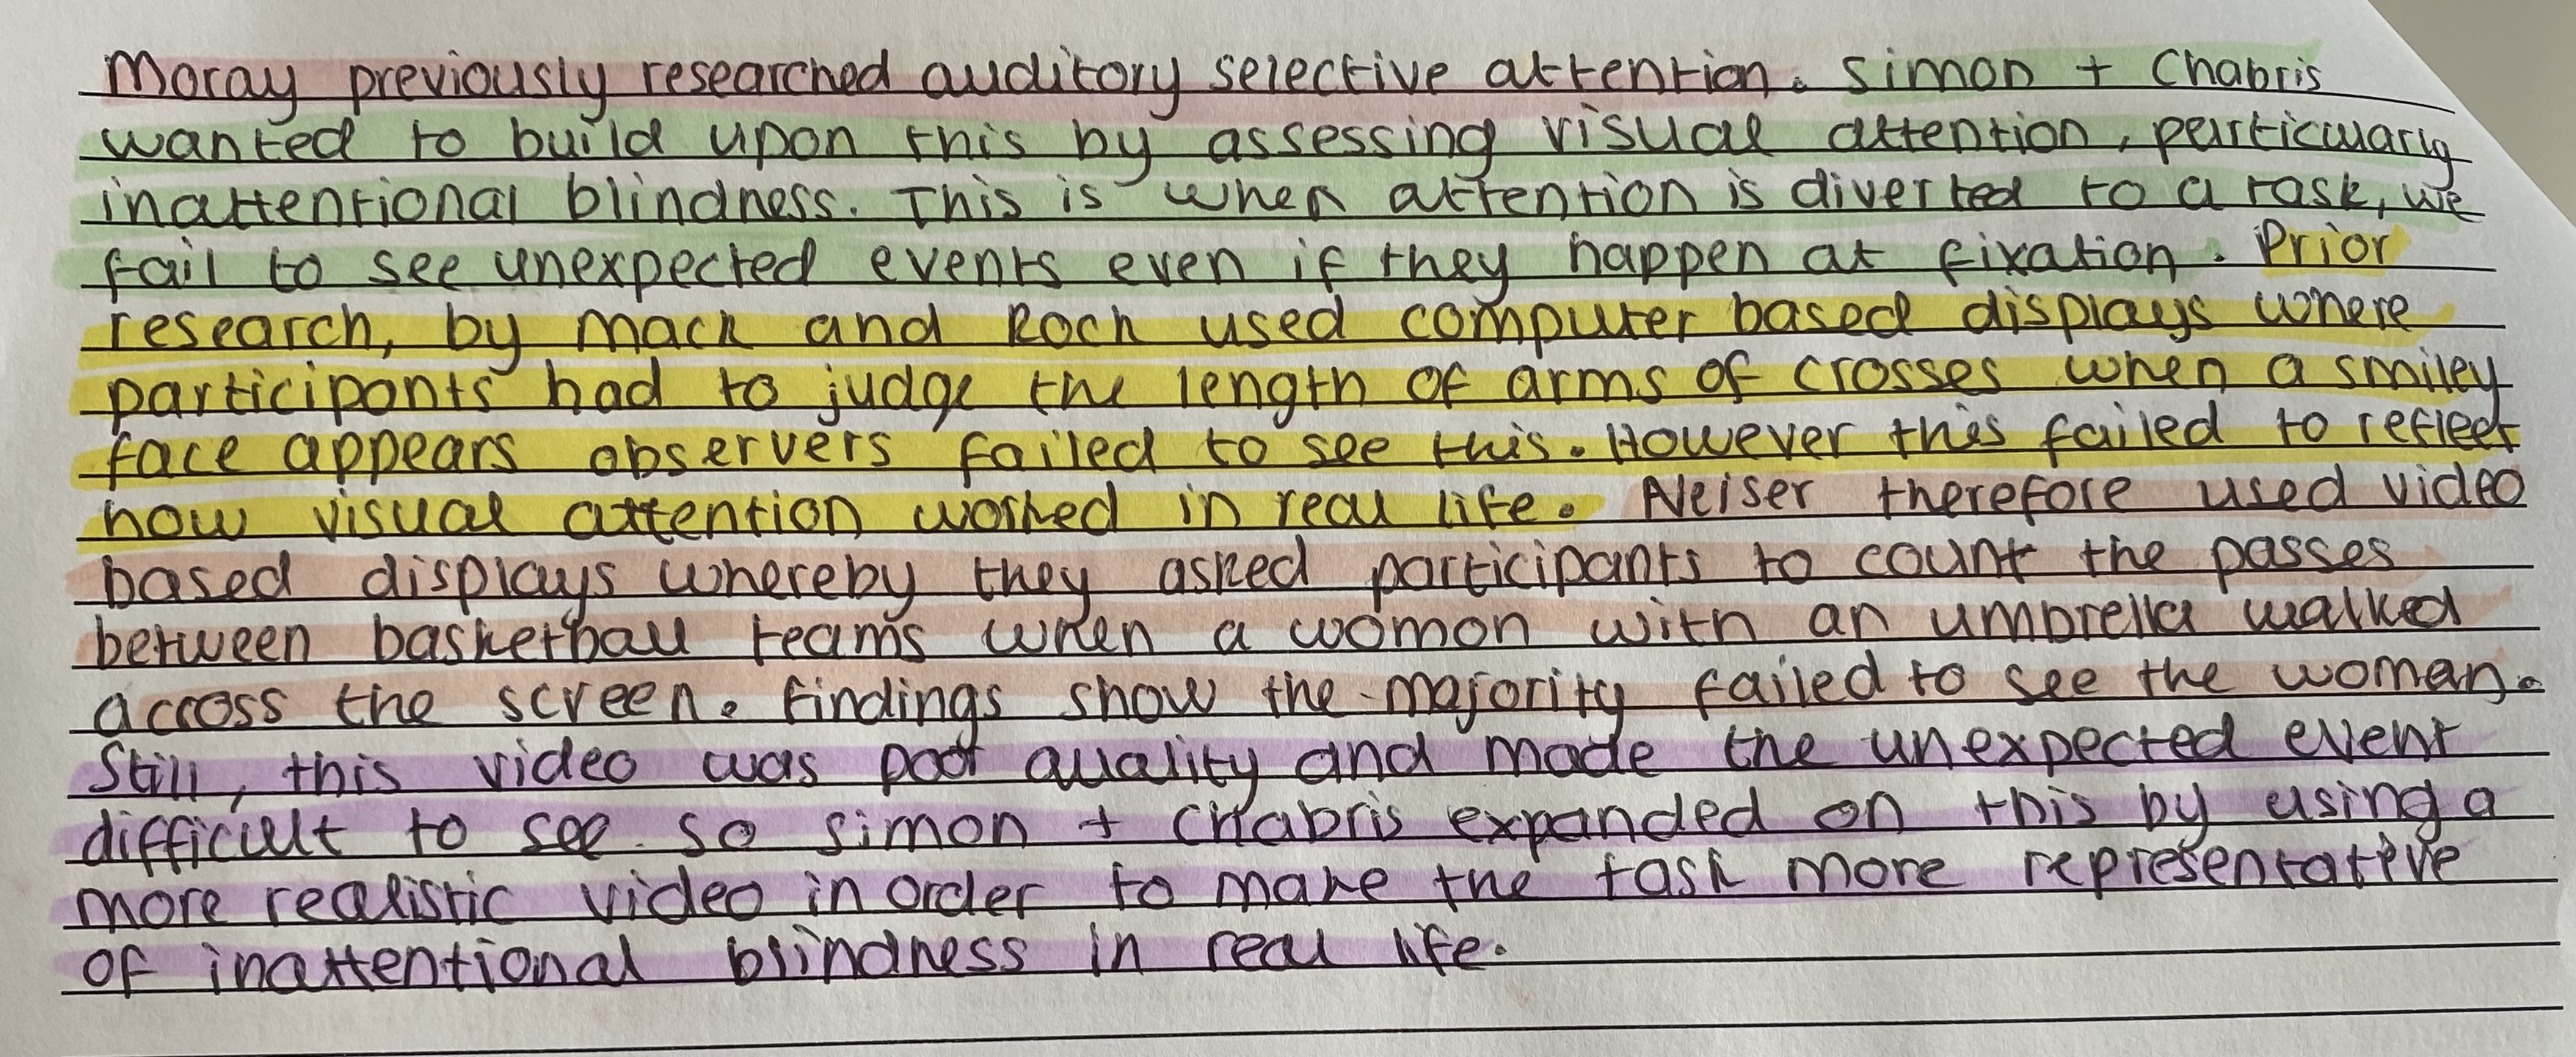 Moray previously researched auditory selective attention. Simon + Chabris
wanted to build upon this by assessing visual attention, particularly
inattentional blindness. This is when attention is diverted to a task, we
fail to see unexpected events even if they happen at fixation. Prior
research, by Mack and Rock used computer based displays where
participants had to judge the length of arms of crosses when a smiley
face appears observers failed to see this. However this failed to reflect
how visual attention worked in real life. Neiser therefore used video
based displays whereby they asked participants to count the passes
between basketball teams when a woman with an umbrella walked
across the screen. Findings show the majority failed to see the woman.
Still, this video was poor quality and made the unexpected event
difficult to see. so simon + chabris expanded on this by using a
more realistic video in order to make the task more representative
of inattentional blindness in real life.